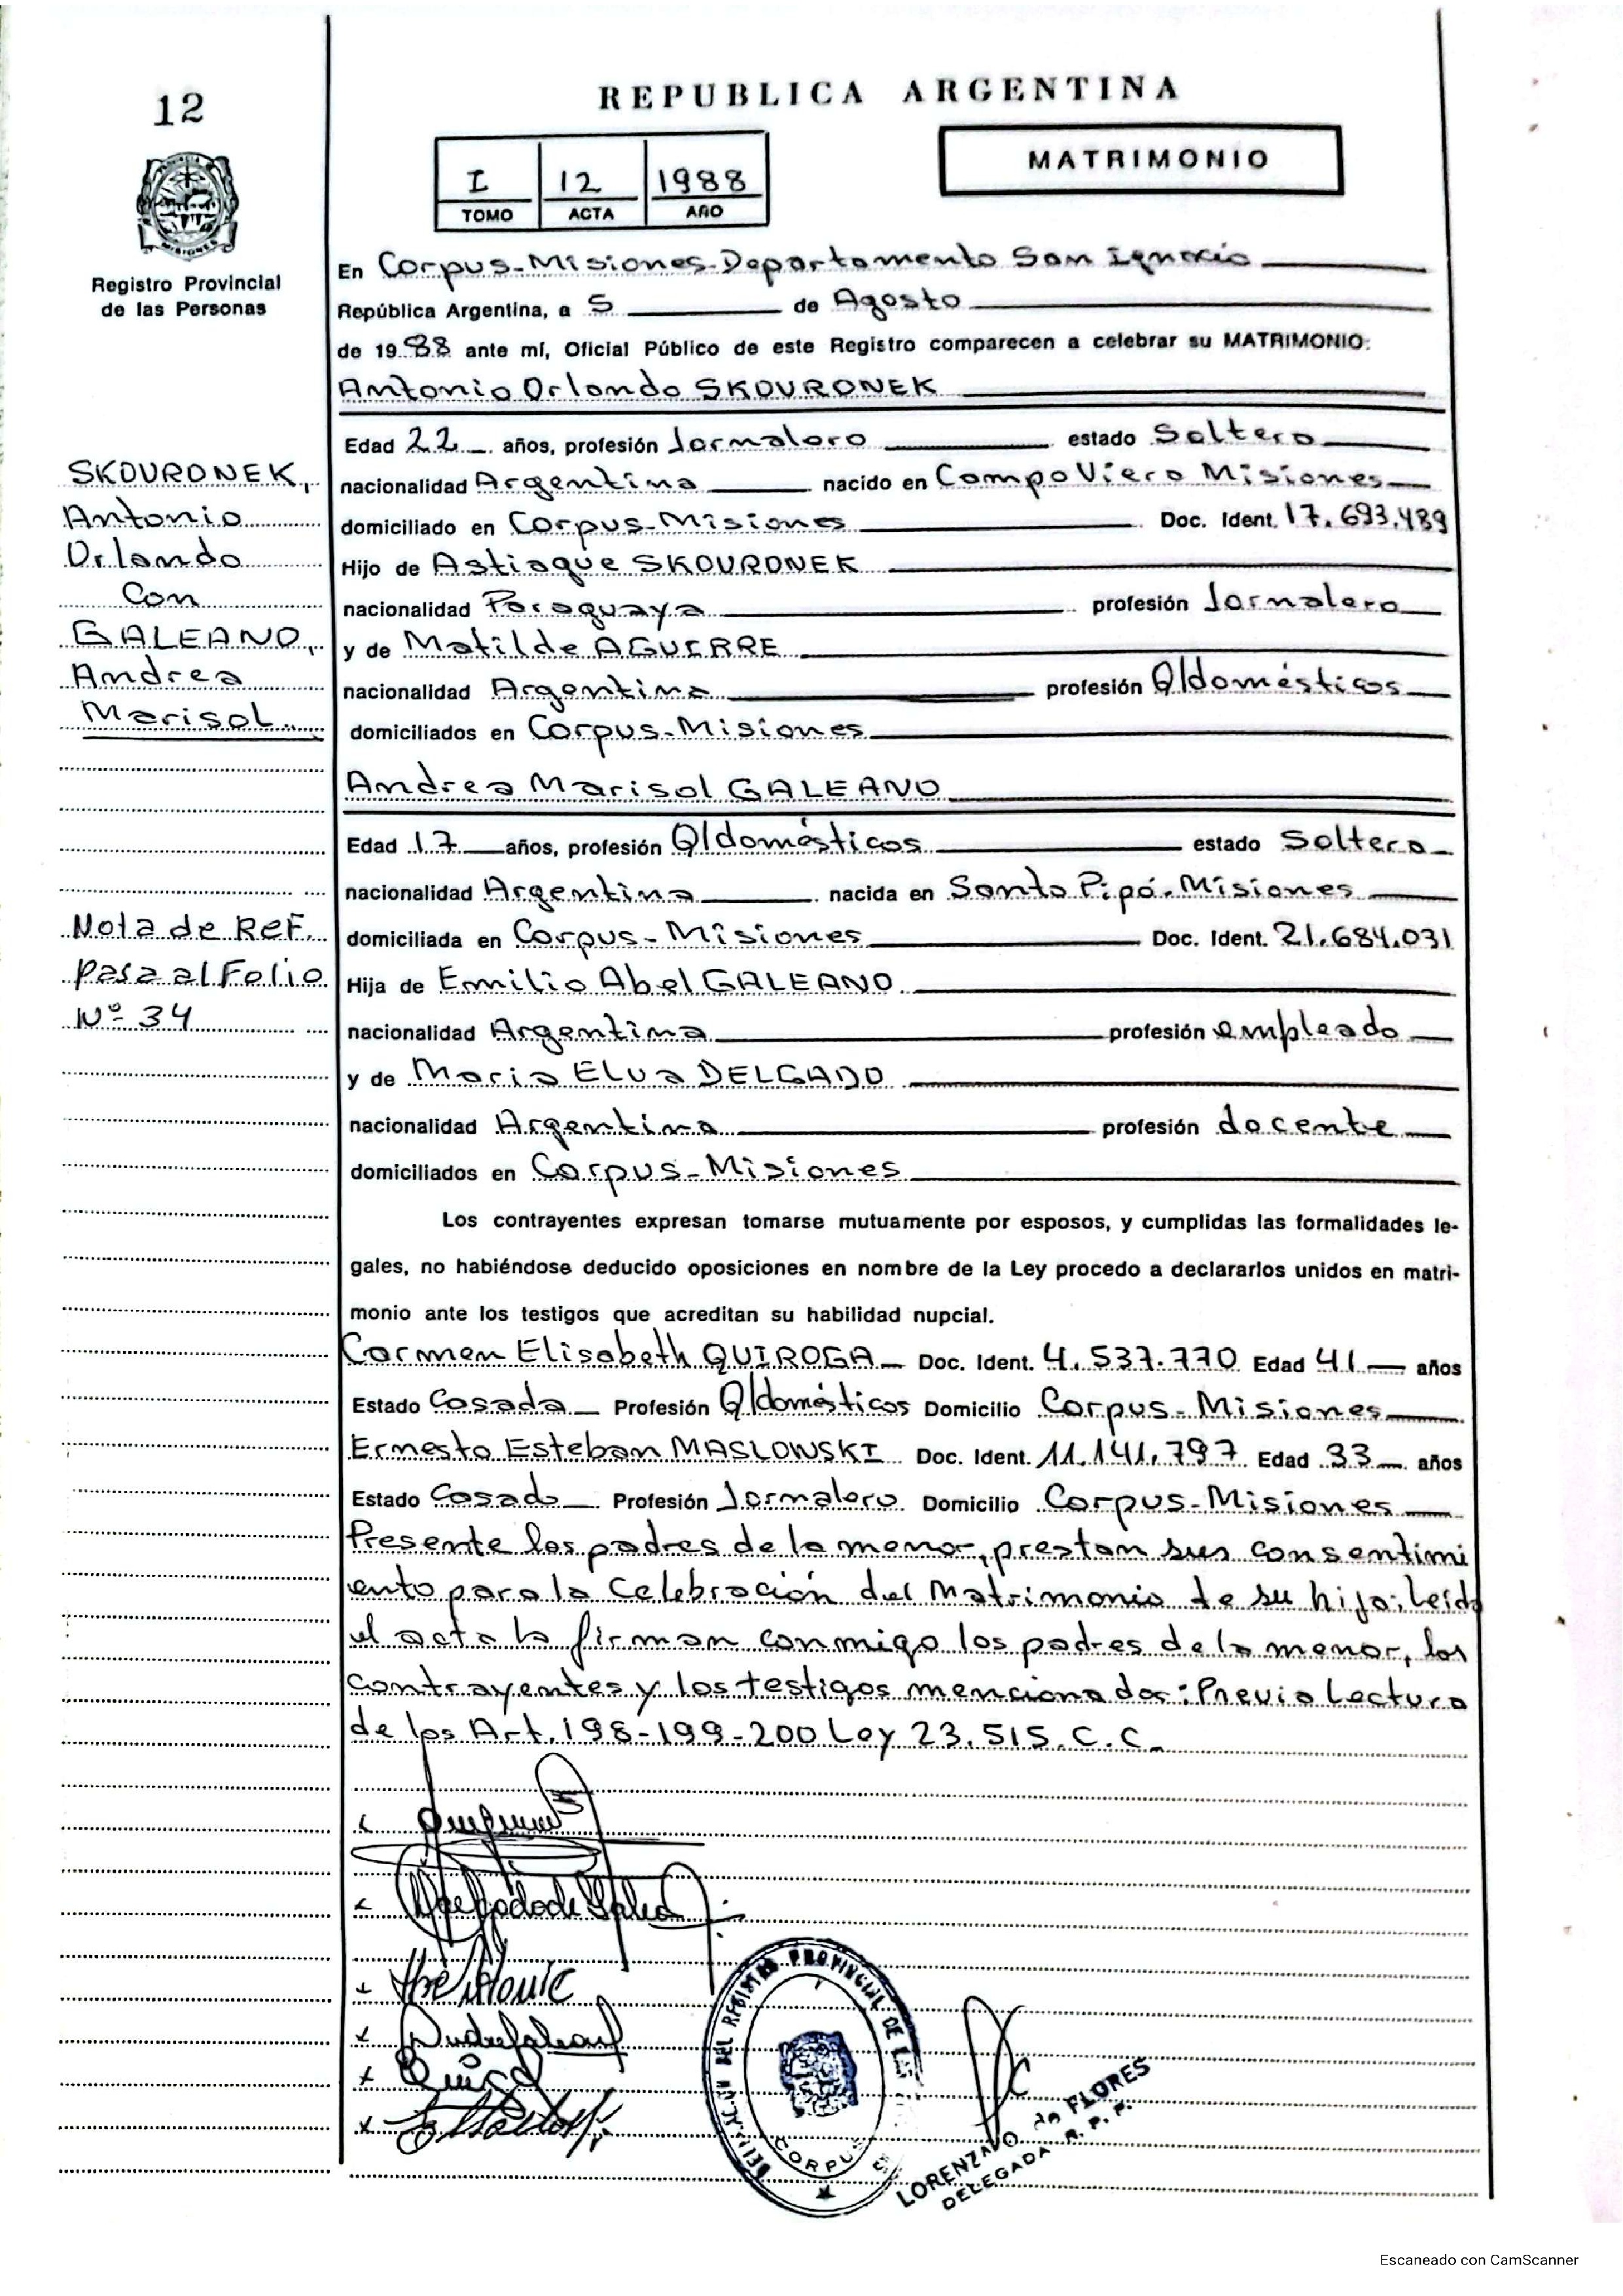 12
REPUBLICA ARGENTINA
MATRIMONIO
I 12 1988
TOMO ACTA AÑO
Registro Provincial
de las Personas
En Corpus-Misiones-Departamento San Ignacio
República Argentina, a 5 de Agosto
de 1988 ante mí, Oficial Público de este Registro comparecen a celebrar su MATRIMONIO:
Antonio Orlando SKOVRONEK
Edad 22 años, profesión Jornalero estado Soltero
nacionalidad Argentina nacido en Campo Viera Misiones
domiciliado en Corpus-Misiones Doc. Ident. 17.693.489
Hijo de Astiaque SKOVRONEK
nacionalidad Paraguaya profesión Jornalero
y de Matilde AGUERRE
nacionalidad Argentina profesión Q/domésticos
domiciliados en Corpus-Misiones
Andrea Marisol GALEANO
Edad 17 años, profesión Q/domésticos estado Soltera
nacionalidad Argentina nacida en Santo Pipó-Misiones
domiciliada en Corpus-Misiones Doc. Ident. 21.684.031
Hija de Emilio Abel GALEANO
nacionalidad Argentina profesión empleado
y de Maria Elva DELGADO
nacionalidad Argentina profesión docente
domiciliados en Corpus-Misiones
SKOVRONEK,
Antonio
Orlando
Con
GALEANO,
Andrea
Marisol
Nota de Ref.
pasa al Folio
Nº 34
Los contrayentes expresan tomarse mutuamente por esposos, y cumplidas las formalidades le-
gales, no habiéndose deducido oposiciones en nombre de la Ley procedo a declararlos unidos en matri-
monio ante los testigos que acreditan su habilidad nupcial.
Carmen Elisabeth QUIROGA Doc. Ident. 4.537.770 Edad 41 años
Estado Casada Profesión Q/domésticos Domicilio Corpus-Misiones
Ernesto Esteban MASLOWSKI Doc. Ident. 11.141.797 Edad 33 años
Estado Casado Profesión Jornalero Domicilio Corpus-Misiones
Presente los padres de la menor, prestan sus consentimi
ento para la Celebración del Matrimonio de su hija; Leída
el acta la firman conmigo los padres de la menor, los
contrayentes y los testigos mencionados: Previa Lectura
de los Art. 198-199-200 Ley 23.515. C.C.
DEL REGISTRO PROVINCIAL DE LAS
CORPUS
FLORES
DELEGADA R. P. P.
Escaneado con CamScanner